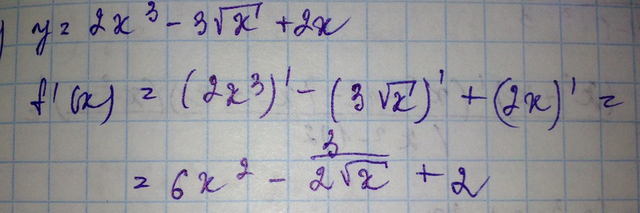 y = 2x³ - 3√x + 2x
f'(x) = (2x³)' - (3√x)' + (2x)' =
= 6x² - 3/(2√x) + 2